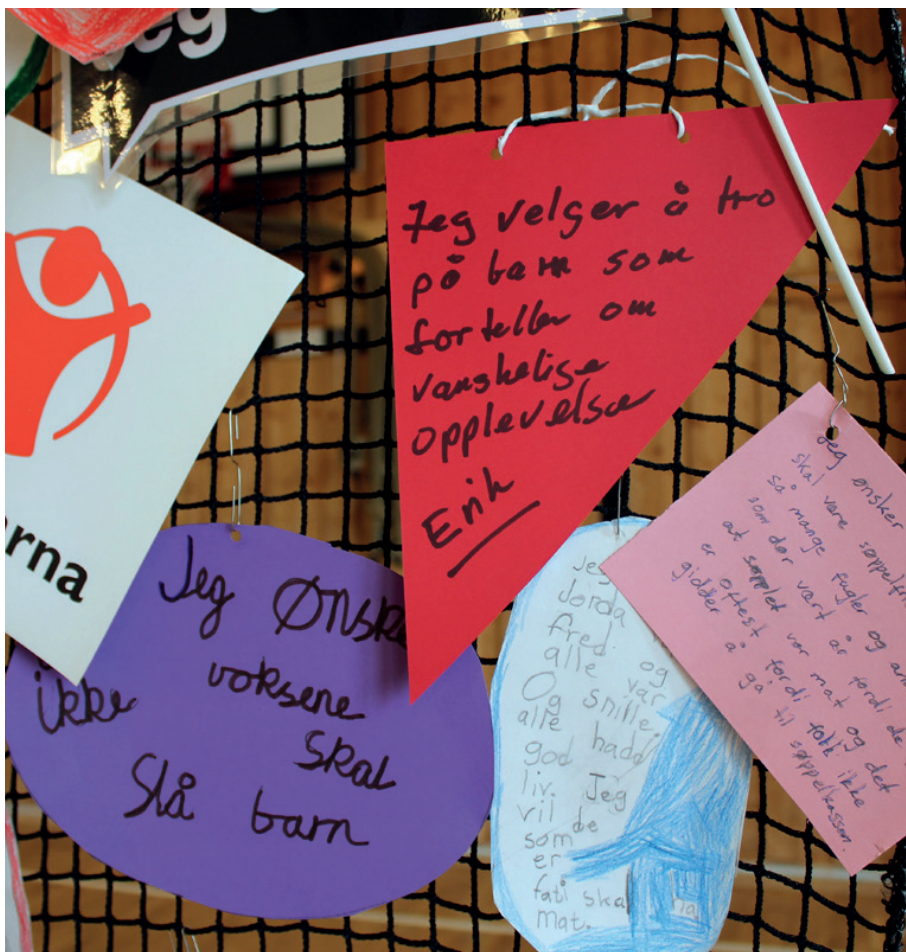 Jeg
Jeg velger å tro
på barn som
forteller om
vanskelige
opplevelser
Erik
rna
Jeg Ønske
ikke voksene
skal
Slå barn
Jeg
Jorda
fred. og
alle var
Og snille.
alle hadd
god
liv. Jeg
vil de
som
er
fati skal ha
mat.
Jeg ønsker
skal være søppelfri
så mange fugler og
som dør vært år fordi de
at søpplet var mat og det
er oftest fordi folk ikke
gidder å gå til søppelkassen.